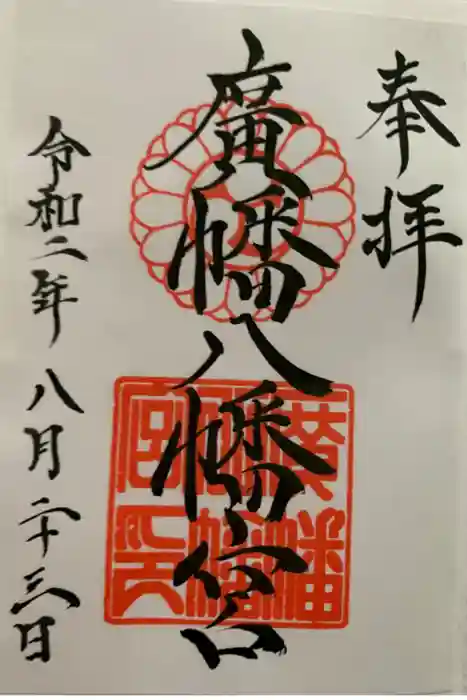 奉拝
廣幡八幡宮
令和二年八月二十三日